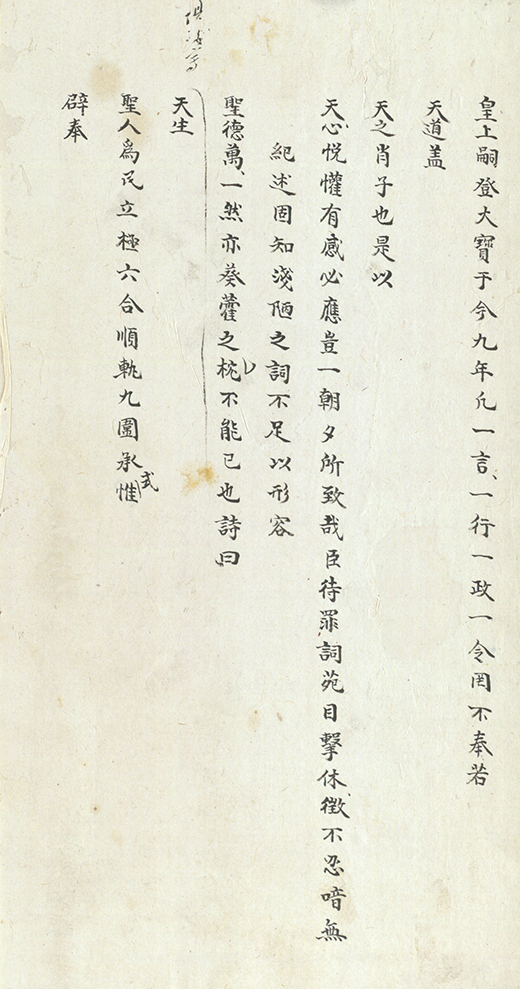 皇上嗣登大寶于今九年凡一言一行一政一令罔不奉若
天道盖
天之肖子也是以
天心悦懽有感必應豈一朝夕所致哉臣待罪詞苑目擊休徵不忍喑無
紀述固知淺陋之詞不足以形容
聖德萬一然亦葵藿之枕不能已也詩曰
天生
聖人爲民立極六合順軌九圍承惟式
辟奉